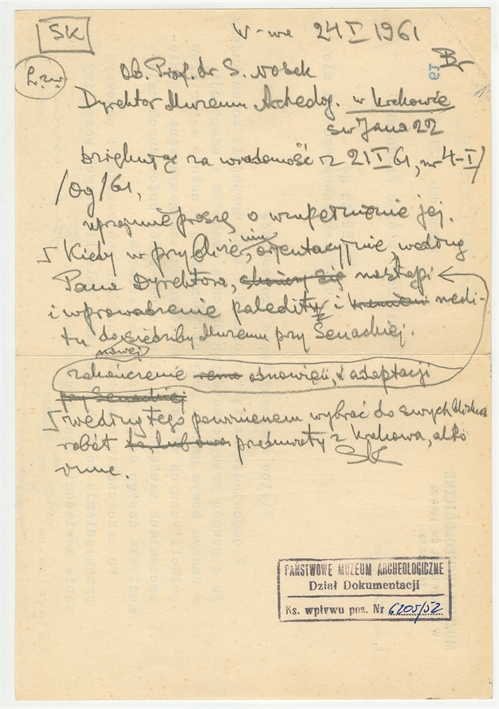 SK
W-wa 24 I 1961
L.dz.
Br
Ob. Prof. dr S. Nosek
Dyrektor Muzeum Archeolog. w Krakowie
św Jana 22
Dziękując za wiadomość z 21 I 61, nr 4-I/
/og/61,
uprzejmie proszę o uzupełnienie jej.
Kiedy w przybliżeniu, orientacyjnie, według
Pana Dyrektora, skończy się nastąpi
i wprowadzenie paleolitu i neoli-
tu do siedziby Muzeum przy Senackiej.
nowej
zakończenie odnowień, i adaptacji
przy Senackiej
według tego powinienem wybrać do swych
robót przedmioty z Krakowa, albo
inne.
SK
PAŃSTWOWE MUZEUM ARCHEOLOGICZNE
Dział Dokumentacji
Ks. wpływu poz. Nr 6205/52